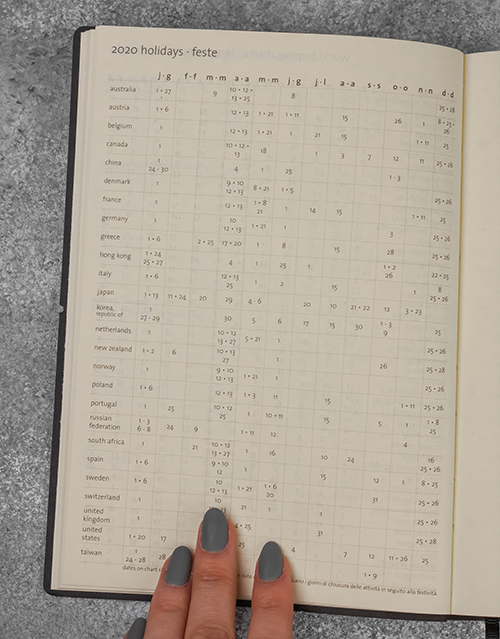 2020 holidays · feste
j · g f · f m · m a · a m · m j · g j · l a · a s · s o · o n · n d · d
australia 1 · 27 9 10 · 12 · 8 25 · 28
13 · 25
austria 1 · 6 12 · 13 1 · 21 1 · 11 15 26 1 8 · 25 ·
26
belgium 1 12 · 13 1 · 21 1 21 15 1 · 11 25
canada 1 10 · 12 · 18 1 3 7 12 11 25 · 26
13
china 1 4 1 25 1 - 3
24 - 30
denmark 1 9 · 10 8 · 21 1 · 5 25 · 26
12 · 13
france 1 12 · 13 1 · 8 1 14 15 1 · 11 25
21
germany 1 10 1 · 21 1 3 25 · 26
12 · 13
greece 1 · 6 2 · 25 17 · 20 1 8 15 28 25 · 26
hong kong 1 · 24 4 1 25 1 1 · 2 22 · 25
25 · 27 26
italy 1 · 6 12 · 13 1 2 15 1 8
25 25 · 26
japan 1 · 13 11 · 24 20 29 4 - 6 20 10 21 · 22 12 3 · 23
korea, 1 30 5 6 17 15 30 1 - 3 25
republic of 27 - 29 9
netherlands 1 10 · 12 5 · 21 1 25 · 26
13 · 27
new zealand 1 · 2 6 10 · 13 1 26 25 · 28
27
norway 1 9 · 10 1 · 21 1 25 · 26
12 · 13
poland 1 · 6 12 · 13 1 · 3 11 15 1 · 11 25 · 26
portugal 1 25 10 · 12 1 10 · 11 15 5 1 1 · 8
25 25
russian 1 - 3 24 9 1 · 11 12 4
federation 6 - 8
south africa 1 21 10 · 12 1 16 10 24 16
13 · 27 25 · 26
spain 1 · 6 9 · 10 1 15 12 1 8 · 25
12
sweden 1 · 6 10 1 · 21 1 · 6 31 25 · 26
12 · 13 20
switzerland 1 10 21 1 1 25 · 26
united 1 1
kingdom 4 · 25 31 25 · 28
united 1 · 20 17
states 4 7 12 11 · 26 25
taiwan 1
24 - 28 28 1 · 9
dates on chart i giorni di chiusura delle attività in seguito alla festività